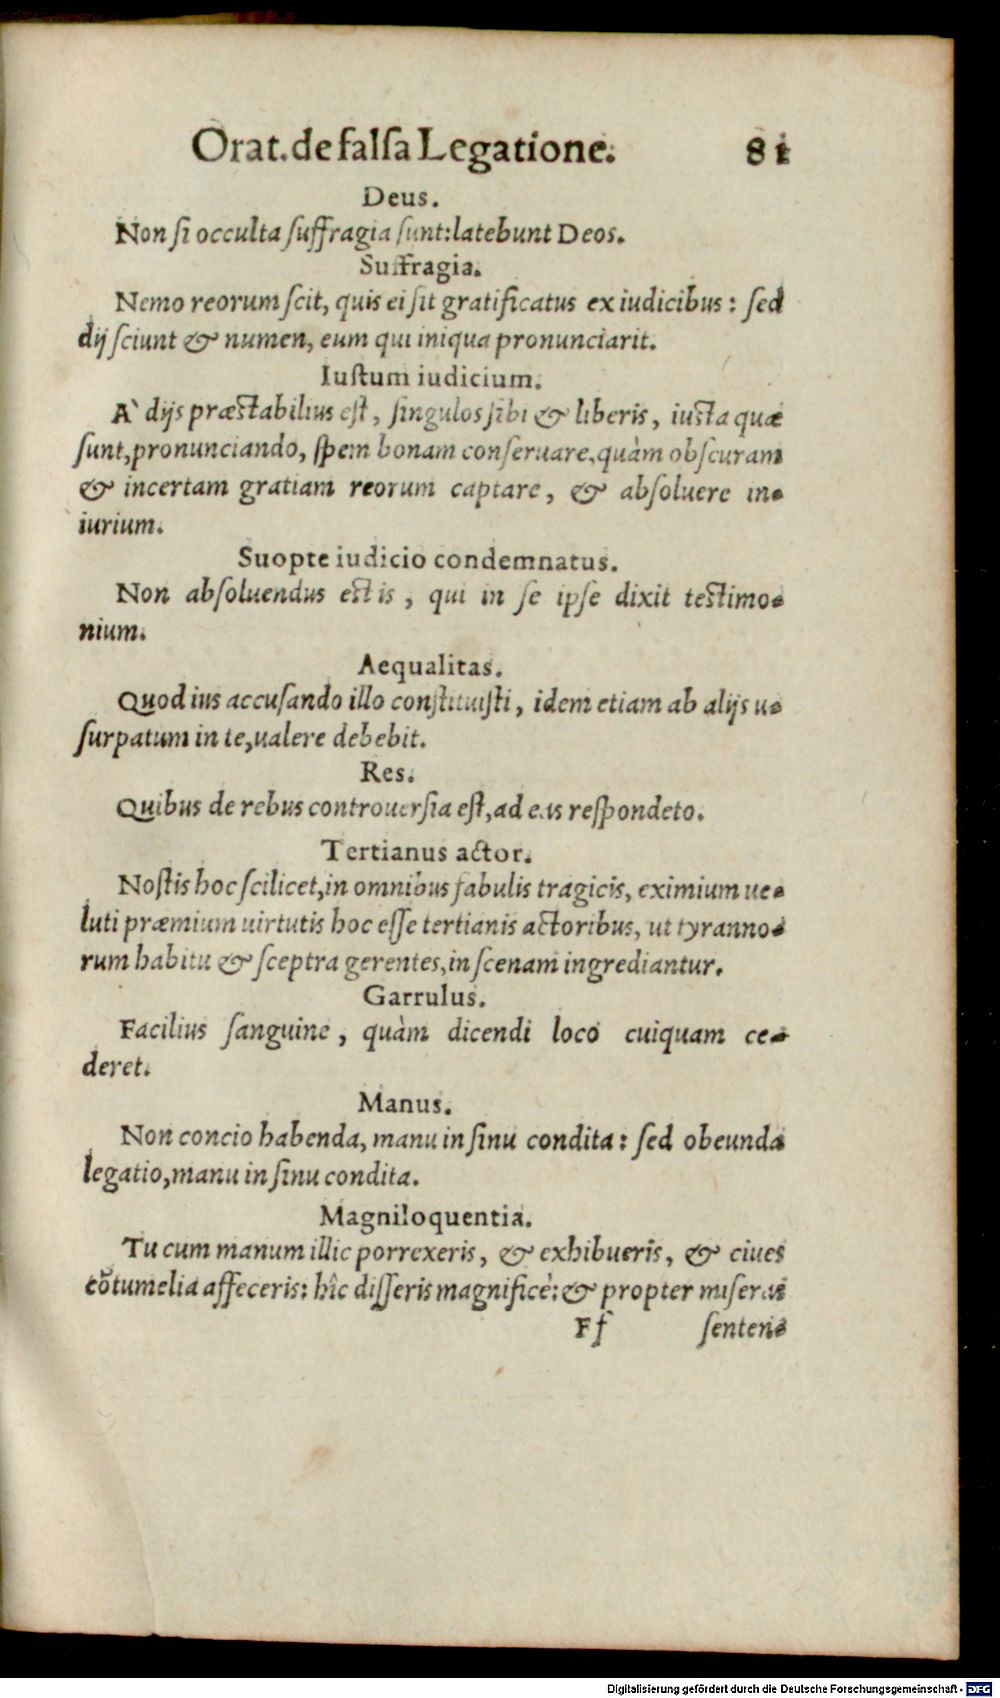 Orat. de falsa Legatione. 81
Deus.
Non si occulta suffragia sunt: latebunt Deos.
Suffragia.
Nemo reorum scit, quis ei sit gratificatus ex iudicibus: sed
dij sciunt & numen, eum qui iniqua pronunciarit.
Iustum iudicium.
A` dijs præstabilius est, singulos sibi & liberis, iusta quæ
sunt, pronunciando, spem bonam conseruare, quàm obscuram
& incertam gratiam reorum captare, & absoluere in-
iurium.
Suopte iudicio condemnatus.
Non absoluendus est is, qui in se ipse dixit testimo-
nium.
Aequalitas.
Quod ius accusando illo constituisti, idem etiam ab alijs u-
surpatum in te, ualere debebit.
Res.
Quibus de rebus controuersia est, ad eas respondeto.
Tertianus actor.
Nostis hoc scilicet, in omnibus fabulis tragicis, eximium ue-
luti præmium uirtutis hoc esse tertianis actoribus, ut tyranno-
rum habitu & sceptra gerentes, in scenam ingrediantur.
Garrulus.
Facilius sanguine, quàm dicendi loco cuiquam ce-
deret.
Manus.
Non concio habenda, manu in sinu condita: sed obeunda
legatio, manu in sinu condita.
Magniloquentia.
Tu cum manum illic porrexeris, & exhibueris, & ciues
cōtumelia affeceris: hîc disseris magnificè: & propter miseras
Ff senten-
Digitalisierung gefördert durch die Deutsche Forschungsgemeinschaft - DFG